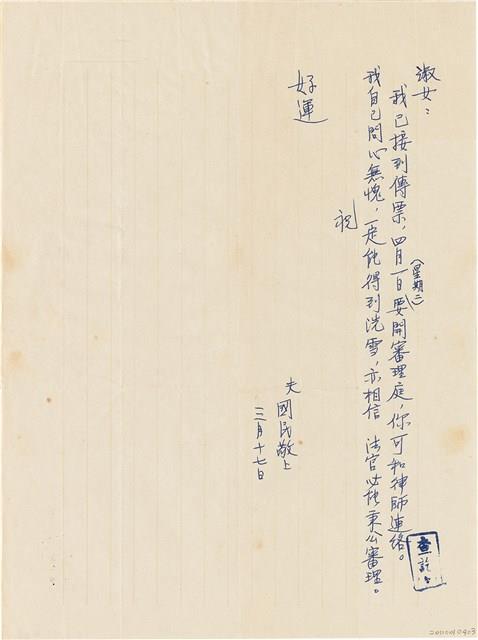 淑女：
我已接到傳票，四月一日(星期二)要開審理庭，你可和律師連絡。
我自己問心無愧，一定能得到洗雪，亦相信 法官必能秉公審理。
祝
好運
夫 國民敬上
三月十七日
查訖